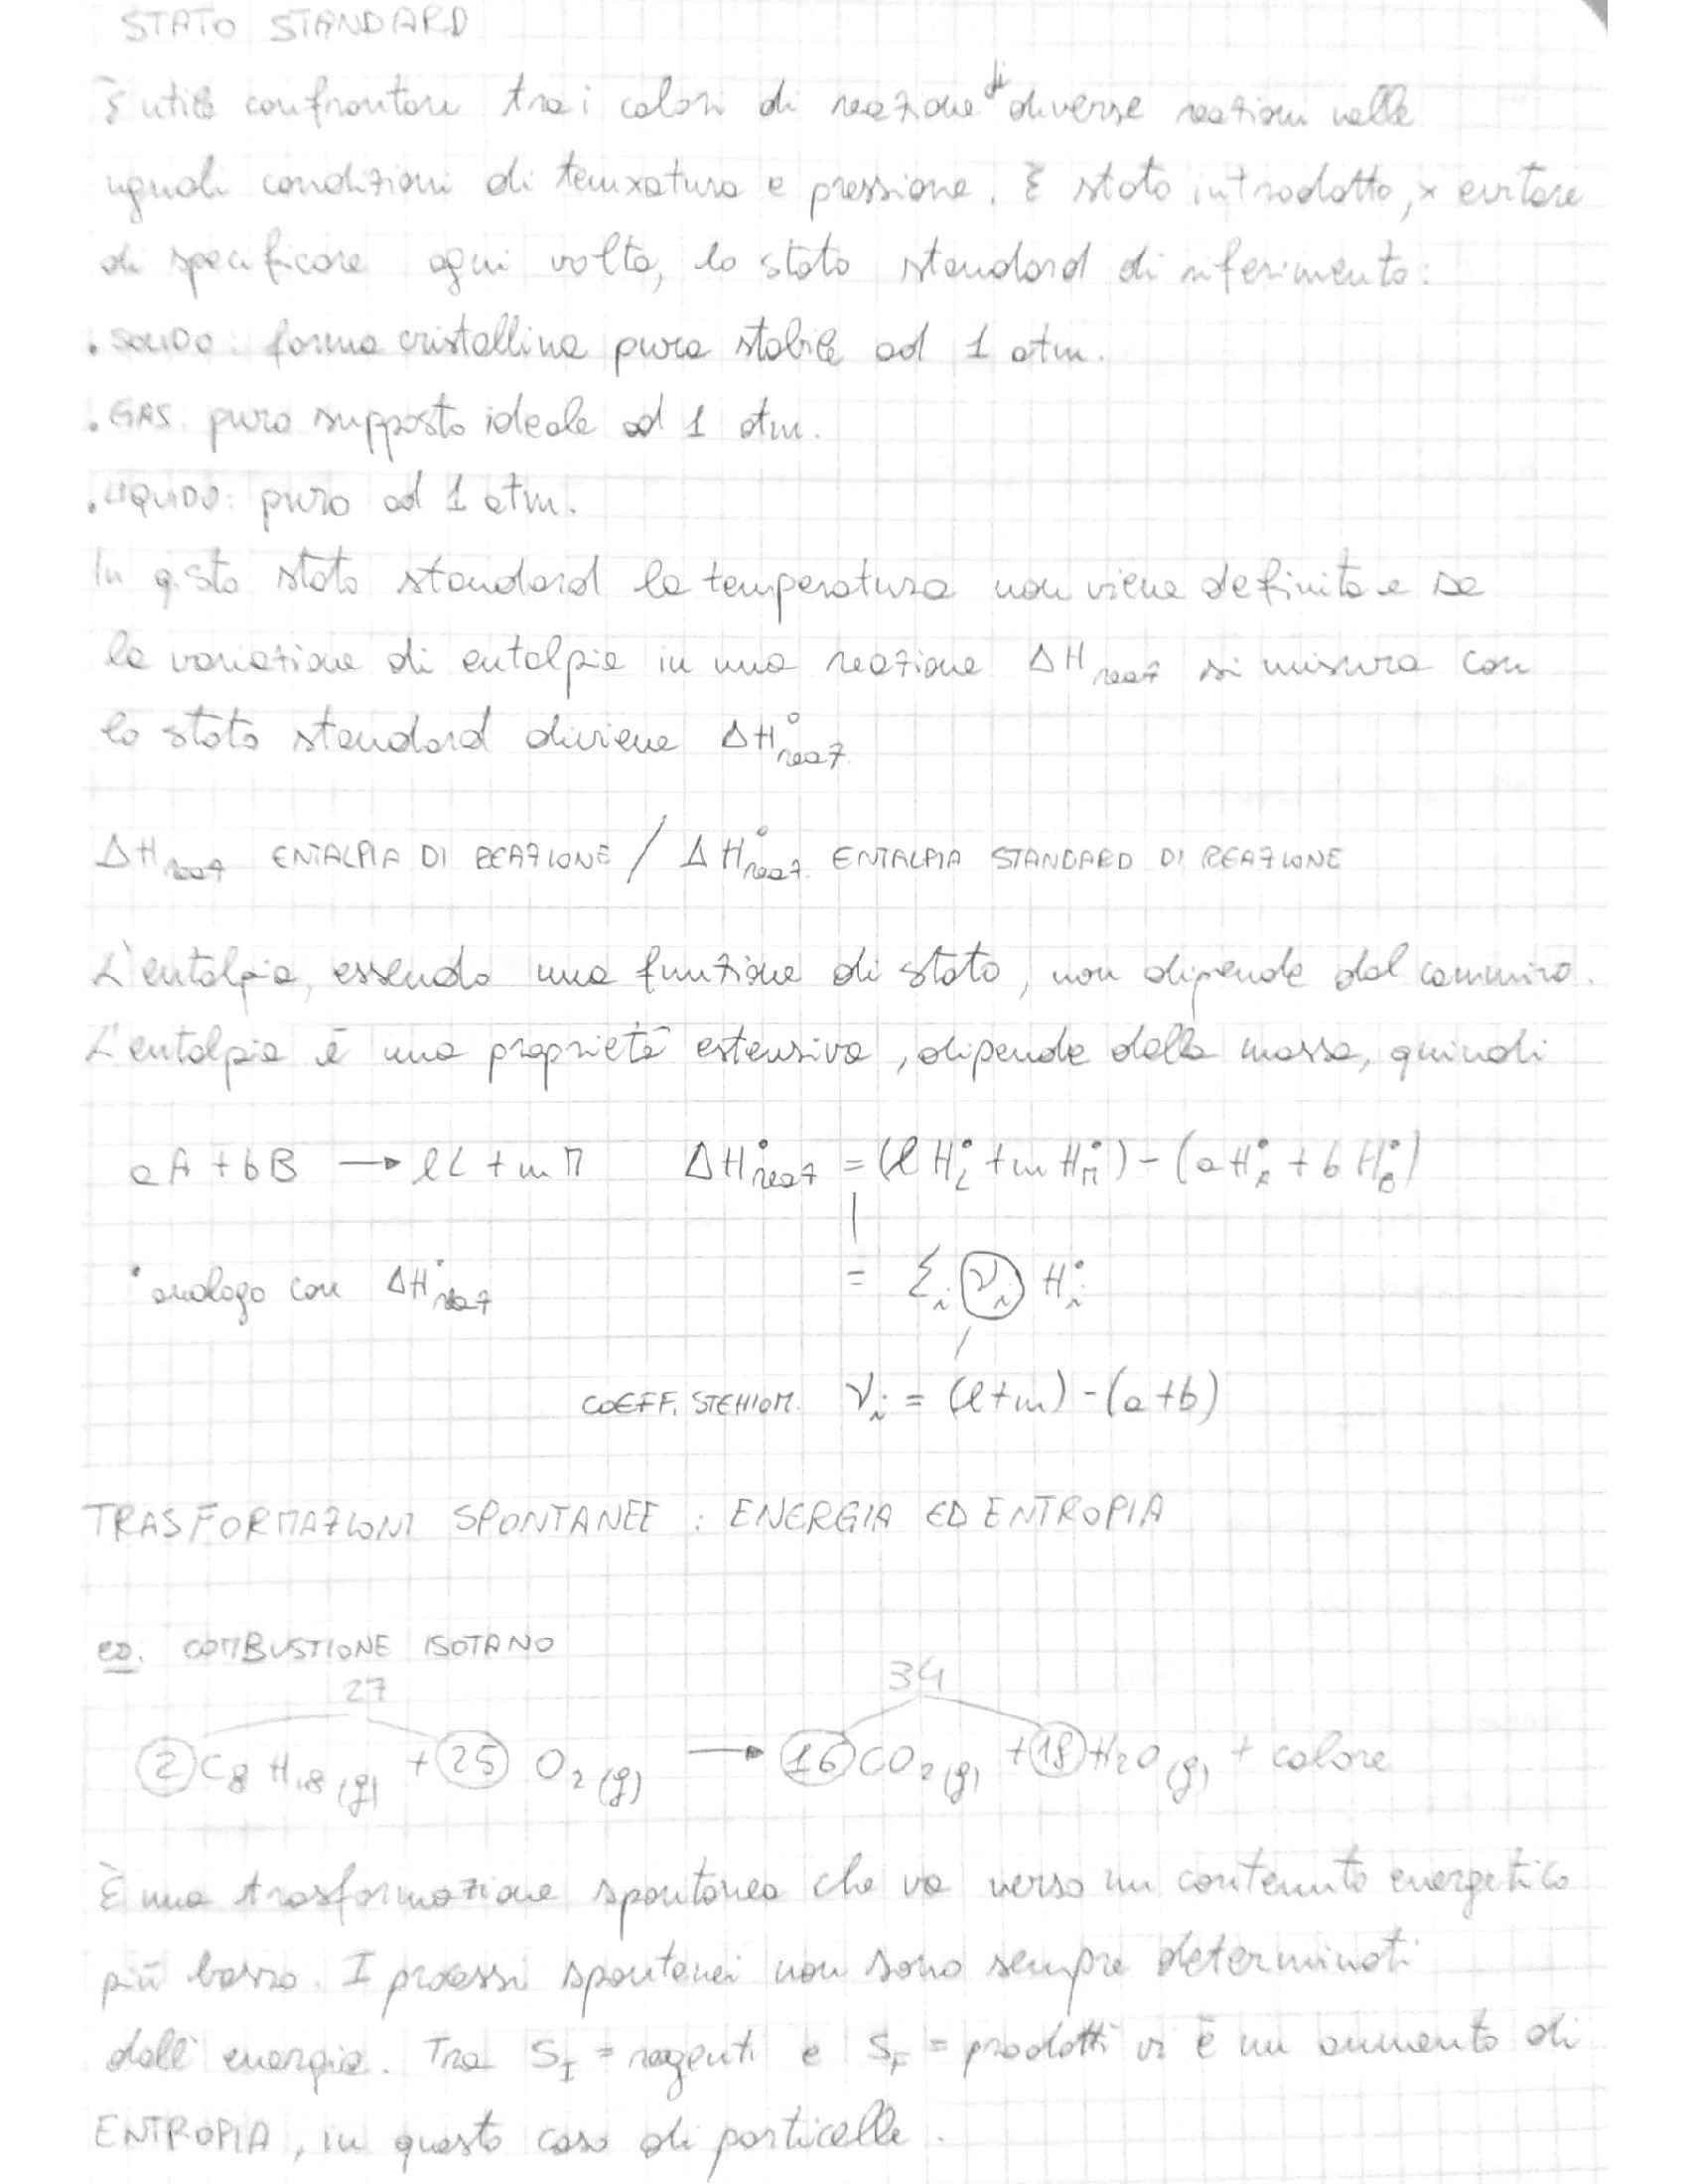 STATO STANDARD
È utile confrontare tra i calori di reazione di diverse reazioni nelle
uguali condizioni di temxatura e pressione. È stato introdotto, x evitare
di specificare ogni volta, lo stato standard di riferimento:
• SOLIDO: forma cristallina pura stabile ad 1 atm.
• GAS: puro supposto ideale ad 1 atm.
• LIQUIDO: puro ad 1 atm.
In qsto stato standard la temperatura non viene definita e se
la variazione di entalpia in una reazione ΔH reaz si misura con
lo stato standard diviene ΔH° reaz.
ΔH reaz ENTALPIA DI REAZIONE / ΔH° reaz. ENTALPIA STANDARD DI REAZIONE
L'entalpia, essendo una funzione di stato, non dipende dal cammino.
L'entalpia è una proprietà estensiva, dipende dalla massa, quindi
aA + bB → lL + mM ΔH° reaz = (l H°L + m H°M) - (a H°A + b H°B)
• analogo con ΔH° reaz = Σi νi H°i
COEFF. STEHIOM. νi = (l+m) - (a+b)
TRASFORMAZIONI SPONTANEE: ENERGIA ED ENTROPIA
es. COMBUSTIONE ISOTANO
27 34
2 C8 H18 (g) + 25 O2 (g) → 16 CO2 (g) + 18 H2O (g) + calore
È una trasformazione spontanea che va verso un contenuto energetico
più basso. I processi spontanei non sono sempre determinati
dall'energia. Tra SI = reagenti e SF = prodotti vi è un aumento di
ENTROPIA, in questo caso di particelle.